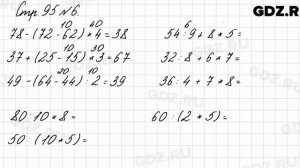 Стр. 95 № 6.
GDZ.RU
10 40
78-(72-62)*4=38
10 30
37+(25-15)*3=67
20 10
49-(64-44):2=39
80:10*8=
50:(10*5)=
6
54:9+8*5=
32:8+6*7=
36:4+7*8=
60:(2*5)=